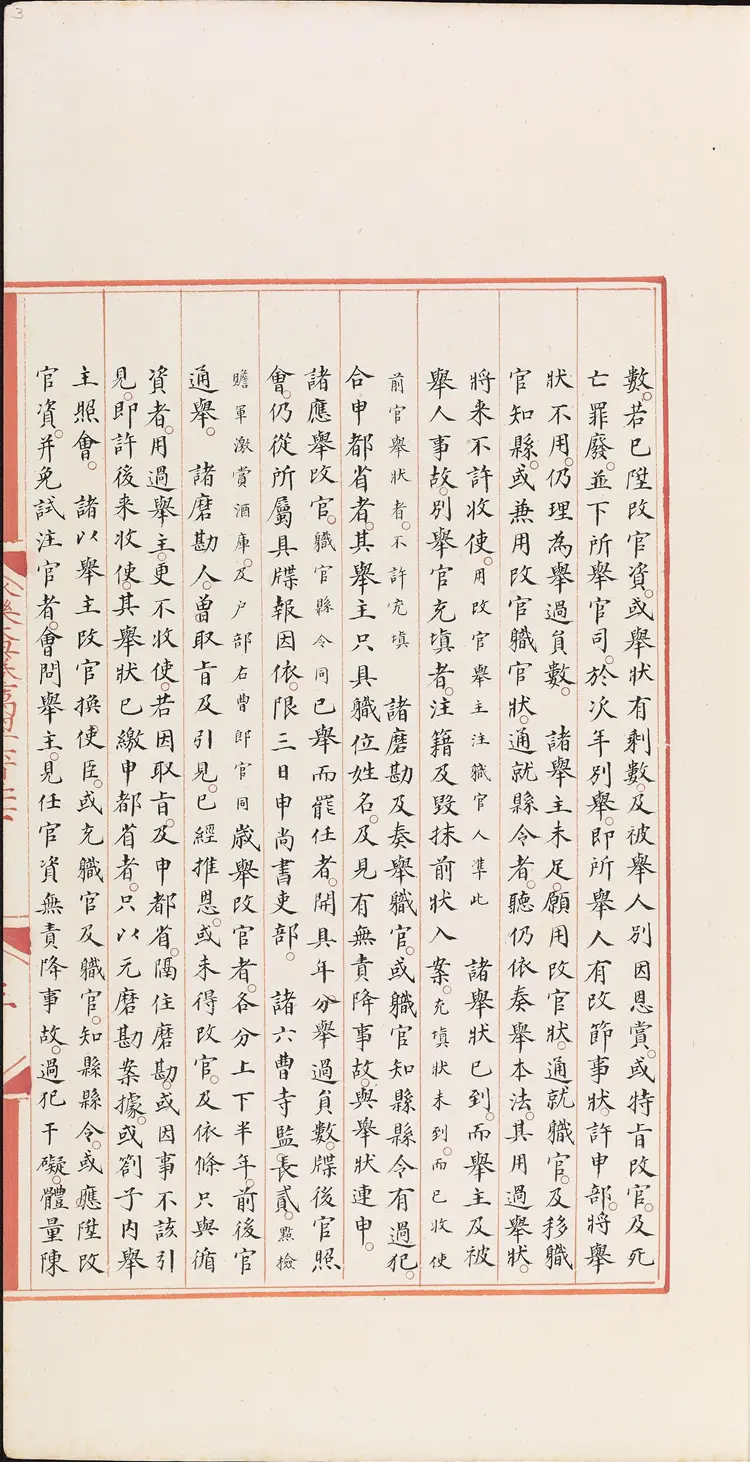 3
數。若已陞改官資。或舉狀有剩數。及被舉人別因恩賞。或特旨改官。及死
亡罪廢。並下所舉官司。於次年別舉。即所舉人有改節事狀。許申部。將舉
狀不用。仍理為舉過員數。 諸舉主未足。願用改官狀。通就職官。及移職
官知縣。或兼用改官職官狀。通就縣令者。聽仍依奏舉本法。其用過舉狀。
將来不許收使。用改官舉主注職官人準此 諸舉狀已到。而舉主及被
舉人事故。別舉官充填者。注籍及毀抹前狀入案。充填狀未到。而已收使
前官舉狀者。不許充填 諸磨勘及奏舉職官。或職官知縣縣令有過犯。
合申都省者。其舉主只具職位姓名。及見有無責降事故。與舉狀連申。
諸應舉改官。職官縣令同已舉而罷任者。開具年分舉過員數。牒後官照
會。仍從所屬具牒報因依。限三日申尚書吏部。 諸六曹寺監長貳。點檢
贍軍激賞酒庫。及户部右曹郎官同歲舉改官者。各分上下半年。前後官
通舉。 諸磨勘人。曾取旨及引見。已經推恩。或未得改官。及依條只與循
資者。用過舉主。更不收使。若因取旨。及申都省。隔住磨勘。或因事不該引
見。即許後来收使。其舉狀已繳申都省者。只以元磨勘案據。或劄子内舉
主照會。 諸以舉主改官換使臣。或充職官及職官。知縣縣令。或應陞改
官資。并免試注官者。會問舉主。見任官資無責降事故。過犯干礙。體量陳